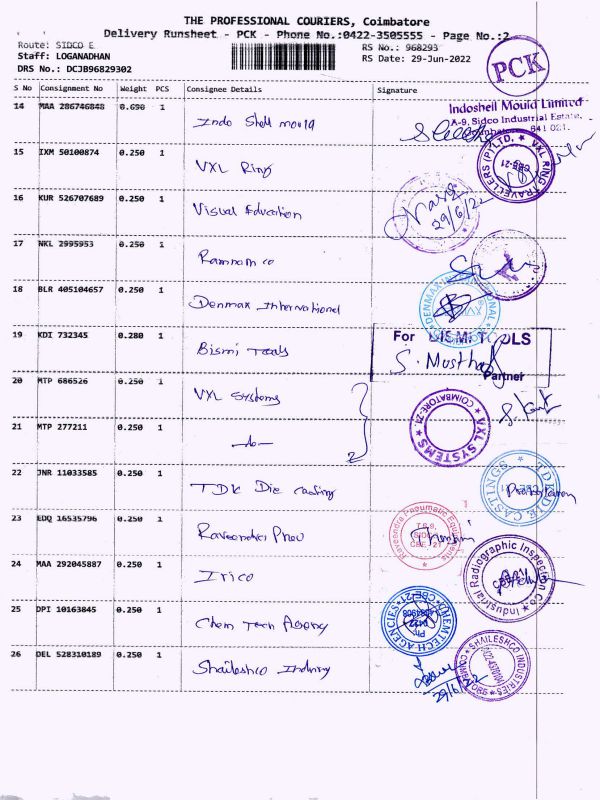 THE PROFESSIONAL COURIERS, Coimbatore
Delivery Runsheet - PCK - Phone No.:0422-3505555 - Page No.:2
Route: SIDCO E
Staff: LOGANADHAN
DRS No.: DCJB96829302
RS No.: 968293
RS Date: 29-Jun-2022
PCK
S No Consignment No Weight PCS Consignee Details Signature
14 MAA 286746848 0.690 1 Indo Shell mould
Indoshell Mould Limited
A-9, Sidco Industrial Estate,
641 021.
15 IXM 50100874 0.250 1 VXL Ring
VXL RING TRAVELLERS (P) LTD. CBE-21
16 KUR 526707689 0.250 1 Visual Education
29/6/22
17 NKL 2995953 0.250 1 Ramnom co
18 BLR 405104657 0.250 1 Denmax International
19 KDI 732345 0.280 1 Bismi Tools
For BISMI TOOLS
S. Musthaf
Partner
20 MTP 686526 0.250 1 VXL Systems
21 MTP 277211 0.250 1 -do-
VXL SYSTEMS COIMBATORE-21.
22 JNR 11033585 0.250 1 TDK Die casting
TDK DIE CASTINGS
23 EDQ 16535796 0.250 1 Raveendra Pneu
Raveendra Pneumatic Equipments
CBE. 21
24 MAA 292045887 0.250 1 Irico
Industrial Radiographic Inspection Co
25 DPI 10163845 0.250 1 Chem Tech Agency
CHEMTECH AGENCIES CBE-21
26 DEL 528310189 0.250 1 Shaileshco Industry
SHAILESHCO INDUSTRIES
29/6/22